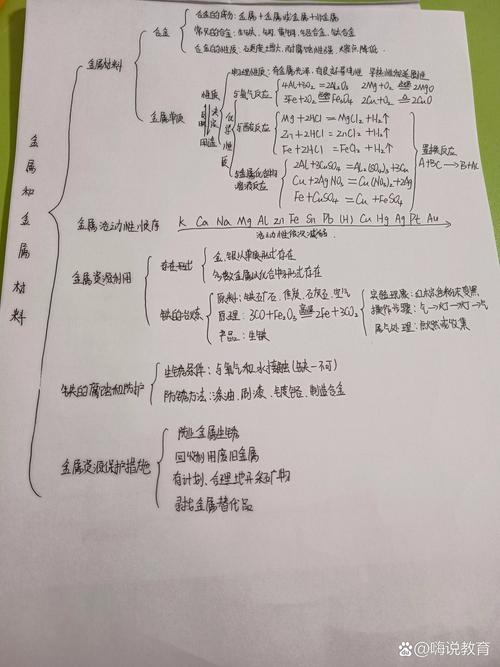 金属和金属材料
金属材料
合金
合金的成分：金属+金属或金属+非金属
常见的合金：生铁、钢、黄铜、铝合金、钛合金
合金的性质：硬度增大，耐腐蚀性强，熔点降低
金属单质
性质
决定
反映
用途
物理性质：有金属光泽，有良好导电性、导热性和延展性
化学性质
与氧气反应
4Al+3O₂=2Al₂O₃ 2Mg+O₂ 点燃 2MgO
3Fe+2O₂ 点燃 Fe₃O₄ 2Cu+O₂ △ 2CuO
与酸反应
Mg+2HCl=MgCl₂+H₂↑
Zn+2HCl=ZnCl₂+H₂↑
Fe+2HCl=FeCl₂+H₂↑
与金属化合物溶液反应
2Al+3CuSO₄=Al₂(SO₄)₃+3Cu
Cu+2AgNO₃=Cu(NO₃)₂+2Ag
Fe+CuSO₄=Cu+FeSO₄
置换反应
A+BC→B+AC
金属活动性顺序
K Ca Na Mg Al Zn Fe Sn Pb (H) Cu Hg Ag Pt Au
活动性依次减弱
金属资源利用
存在形式
金、银以单质形式存在
多数金属以化合物形式存在
铁的冶炼
原料：铁矿石、焦炭、石灰石、空气
原理：3CO+Fe₂O₃ 高温 2Fe+3CO₂
产品：生铁
实验现象：红棕色粉末变黑
操作步骤：气→灯→灯→气
尾气处理：点燃或收集
铁的腐蚀和防护
生锈条件：与氧气和水接触（缺一不可）
防锈方法：涂油、刷漆、镀铬、制造合金
金属资源保护措施
防止金属生锈
回收利用废旧金属
有计划、合理地开采矿物
寻找金属替代品
嗨说教育